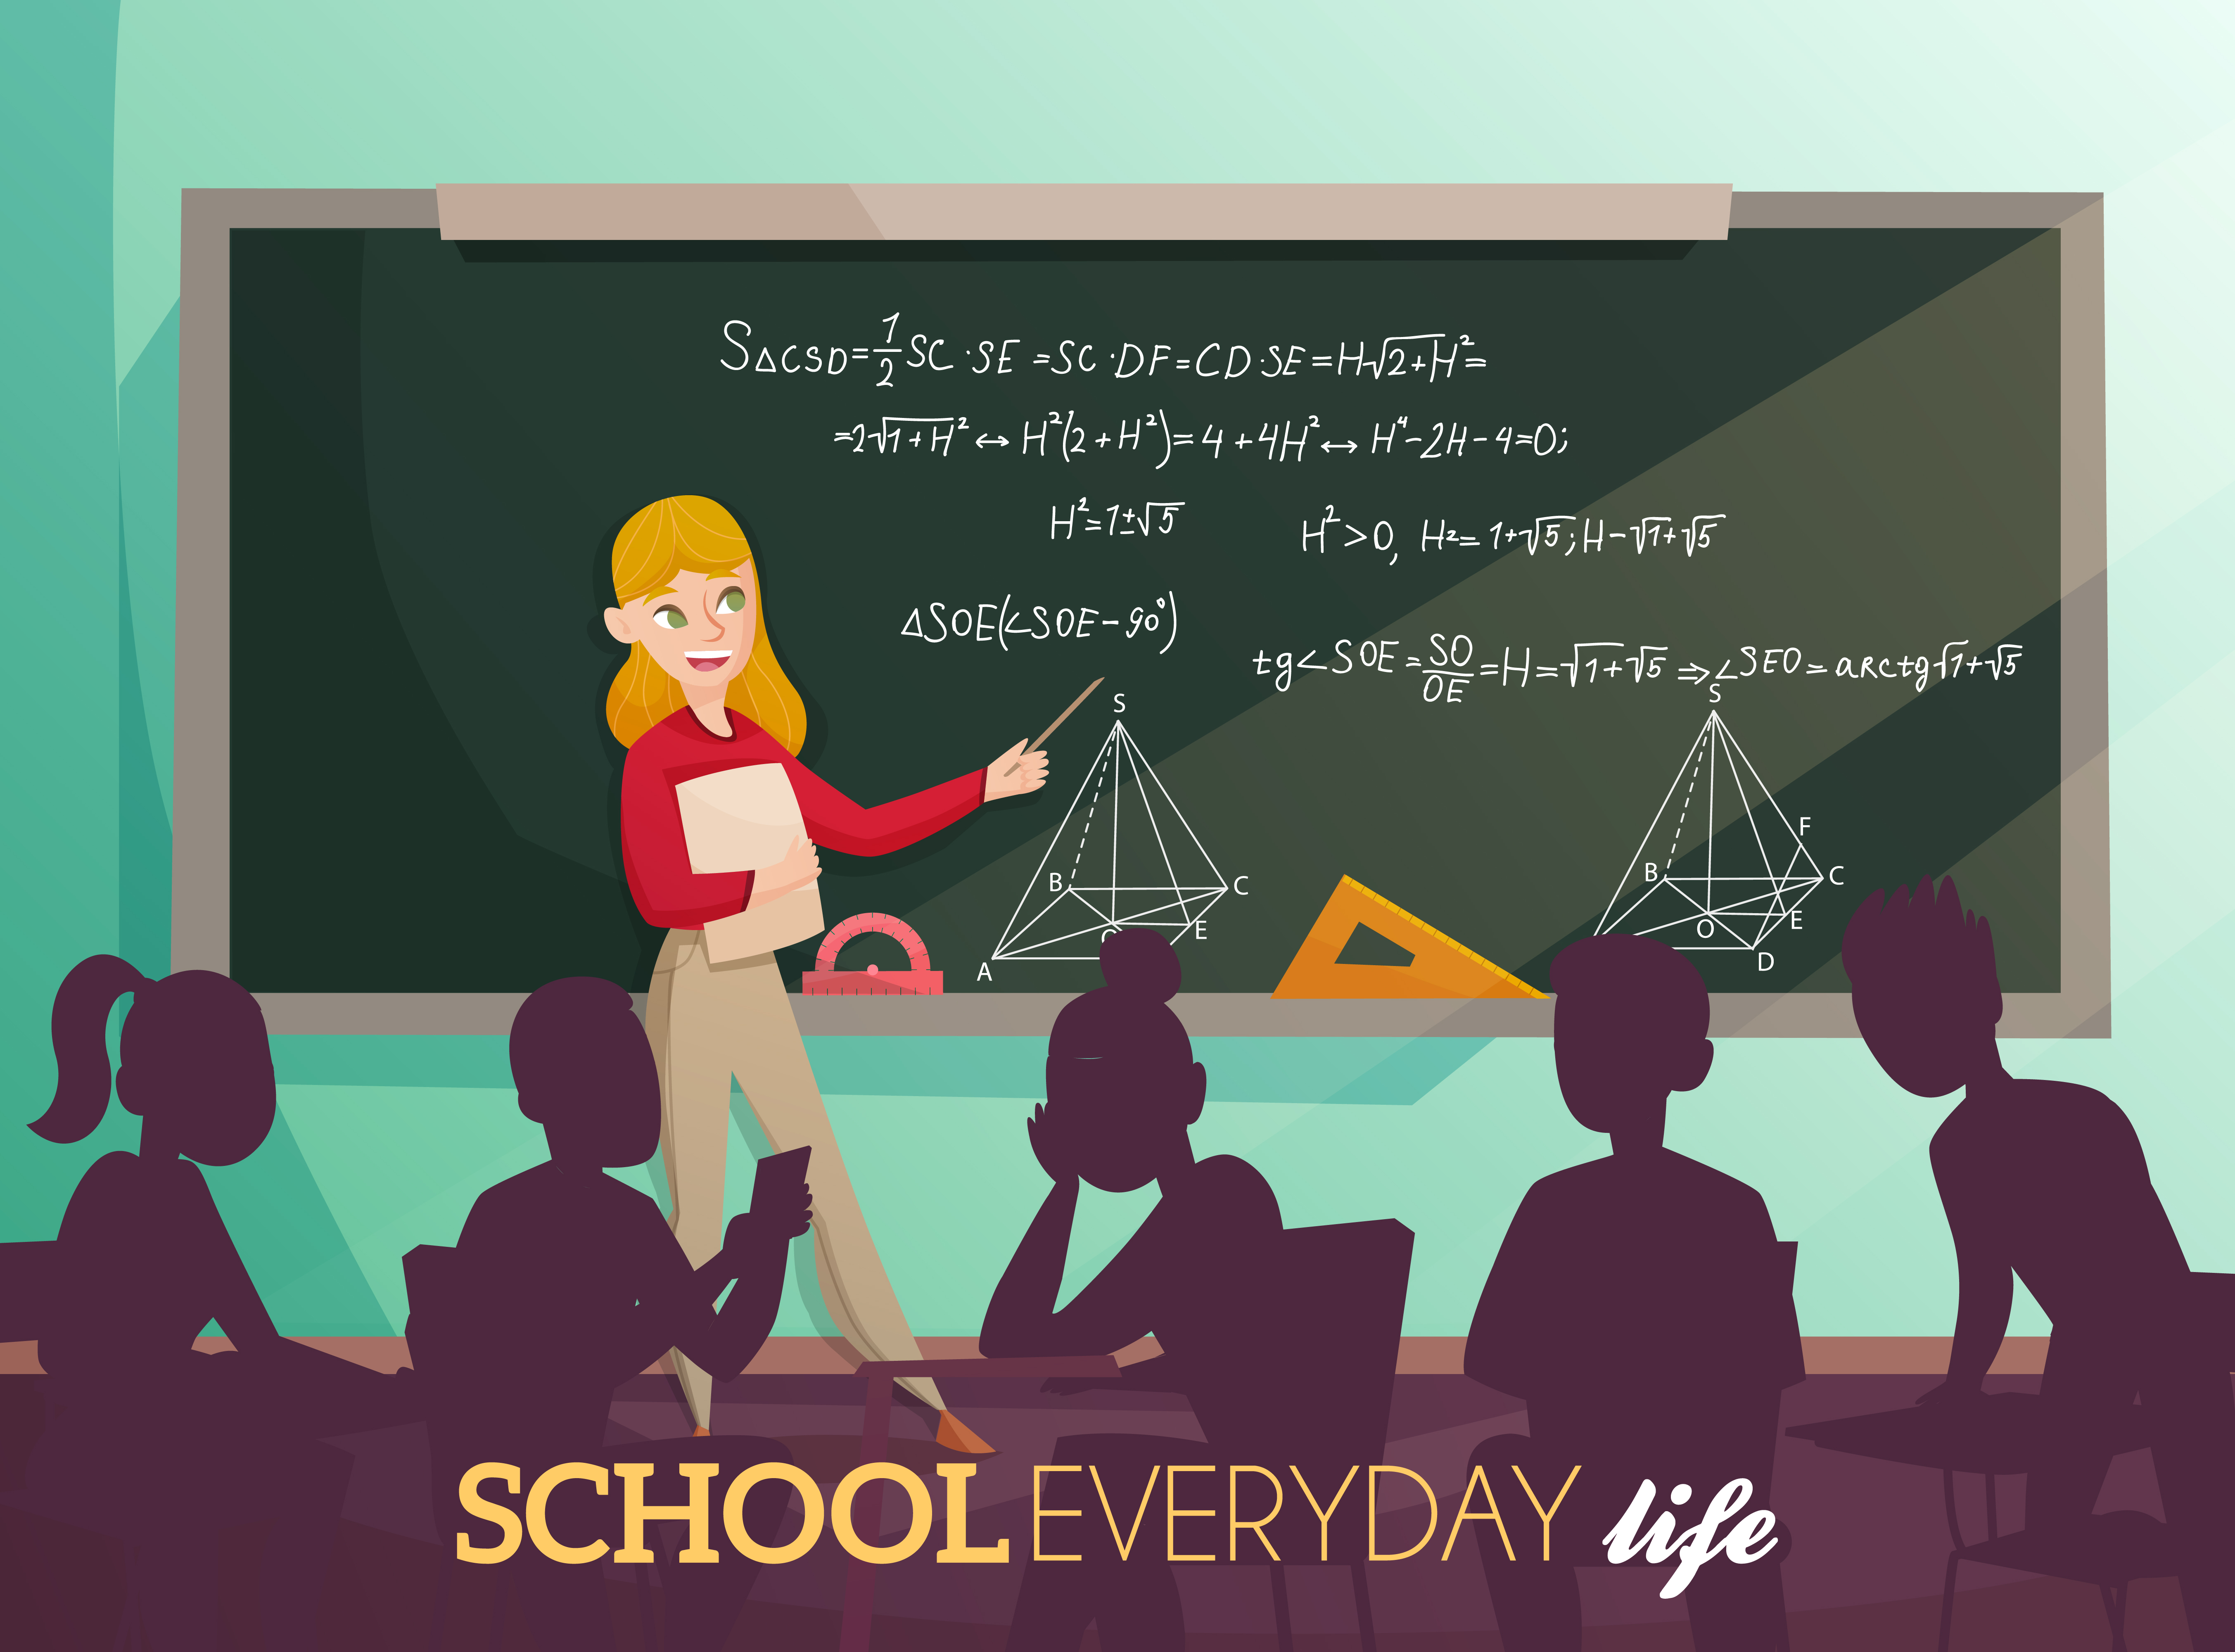 S△CSD=1/2 SC·SE=SC·DF=CD·SE=H√2+H²=
=2√1+H² ↔ H²(2+H²)=4+4H² ↔ H⁴-2H-4=0;
H²=1±√5 H²>0, H2=1+√5; H-√1+√5
△SOE(∠SOE-90°)
tg∠SOE=SO/OE=H=√1+√5 ⇒∠SEO=arctg√1+√5
S S
F
B C B C
E O E
A D
SCHOOL EVERYDAY life